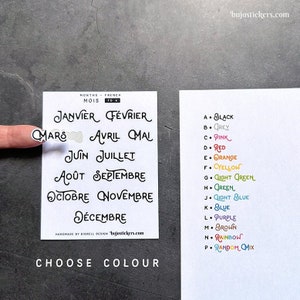 bujostickers.com
MONTHS • FRENCH
MOIS
Janvier Février
Mars Avril Mai
Juin Juillet
Août Septembre
Octobre Novembre
Décembre
HANDMADE BY BIOREJI DESIGN bujostickers.com
CHOOSE COLOUR
A • Black
B • Grey
C • Pink
D • Red
E • Orange
F • Yellow
G • Light Green
H • Green
J • Light Blue
K • Blue
L • Purple
M • Brown
N • Rainbow
P • Random Mix